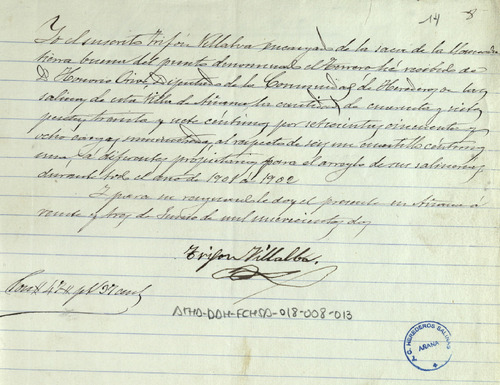 14 8
Yo el suscrito Trifón Villalva encargado de la saca de la llamada
tierra buena del punto denominado el Terrero hé recibido de
D. Honorio Diputado de la Comunidad de Herederos en las
salinas de esta Villa de Añana la cantidad de cuarenta y siete
pesetas treinta y siete centimos por setecientas cincuenta y
ocho cargas suministradas, al respecto de seis un cuartillo centimos
una, á diferentes propietarios para el arreglo de sus salinas
durante todo el año de 1901 á 1902
Y para su resguardo le doy el presente en Añana á
veinte y tres de Junio de mil novecientos dos
Trifon Villalba.
Son 47 pts 37 cents
ATHA-DAH-FCHSA-018-008-013
HEREDEROS SALINAS
AÑANA